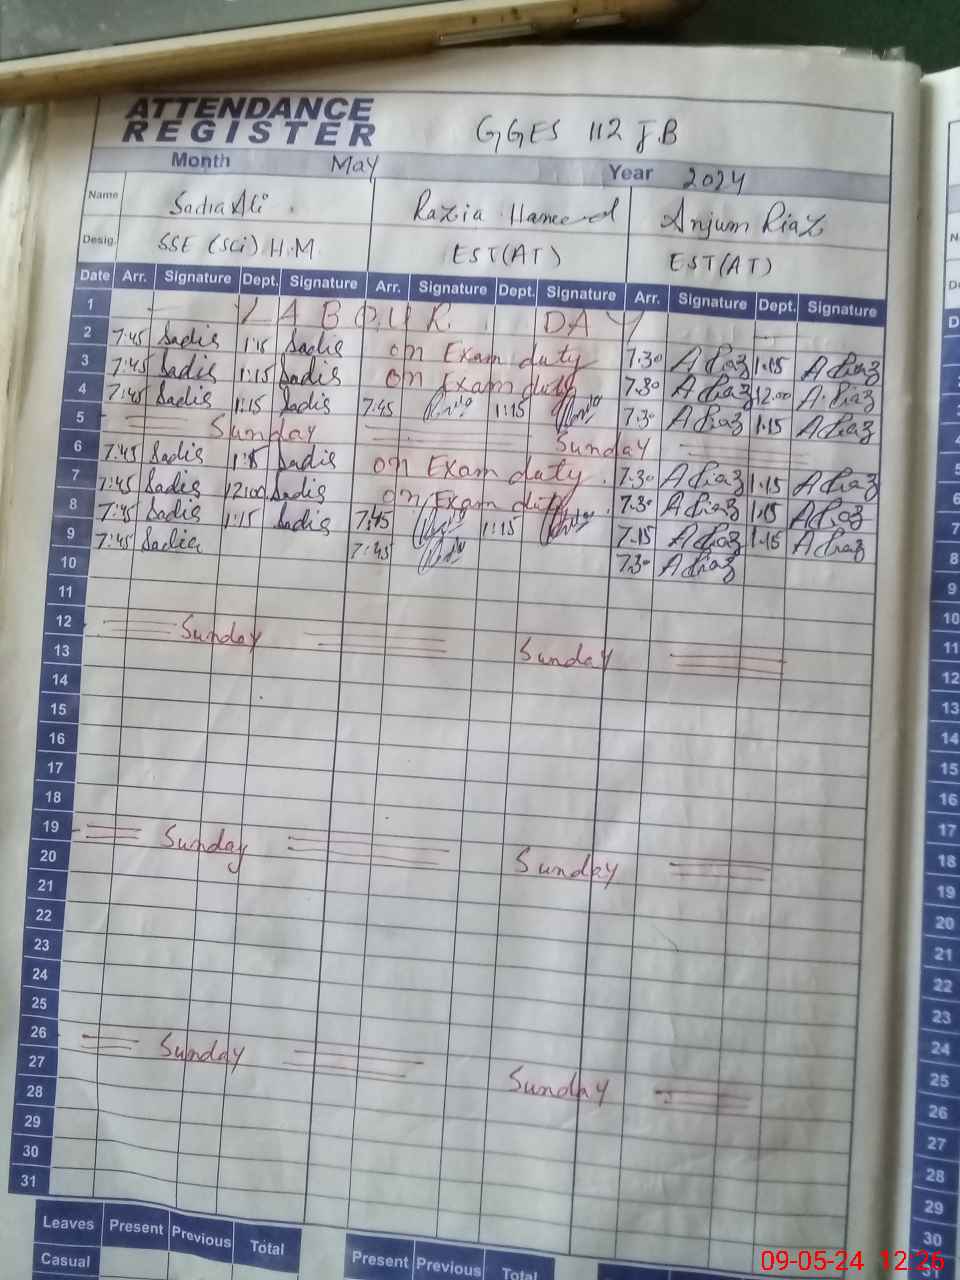 ATTENDANCE
REGISTER
GGES 112 J.B
Month May Year 2024
Name Sadia Ali . Razia Hameed Anjum Riaz
Desig. SSE (Sci) H.M. EST(AT) EST(AT)
Date Arr. Signature Dept. Signature Arr. Signature Dept. Signature Arr. Signature Dept. Signature
1 DAY
2 7:45 Sadis 1:15 Sadis on Exam duty 7.30 A Riaz 1.15 A Riaz
3 7:45 Sadis 1:15 Sadis on Exam duty 7.30 A Riaz 12.00 A. Riaz
4 7:45 Sadis 1:15 Sadis 7:45 1:15 7.30 A Riaz 1.15 A Riaz
5 Sunday Sunday
6 7:45 Sadis 1:15 Sadis on Exam duty 7.30 A Riaz 1.15 A Riaz
7 7:45 Sadis 12:00 Sadis on Exam duty 7.30 A Riaz 1.15 A Riaz
8 7:45 Sadis 1:15 Sadis 7:45 1:15 7.15 A Riaz 1.15 A Riaz
9 7:45 Sadia 7:45 7.30 A Riaz
10
11
12 Sunday Sunday
13
14
15
16
17
18
19 Sunday Sunday
20
21
22
23
24
25
26 Sunday Sunday
27
28
29
30
31
Leaves Present Previous Total Present Previous Total
Casual
09-05-24 12:26